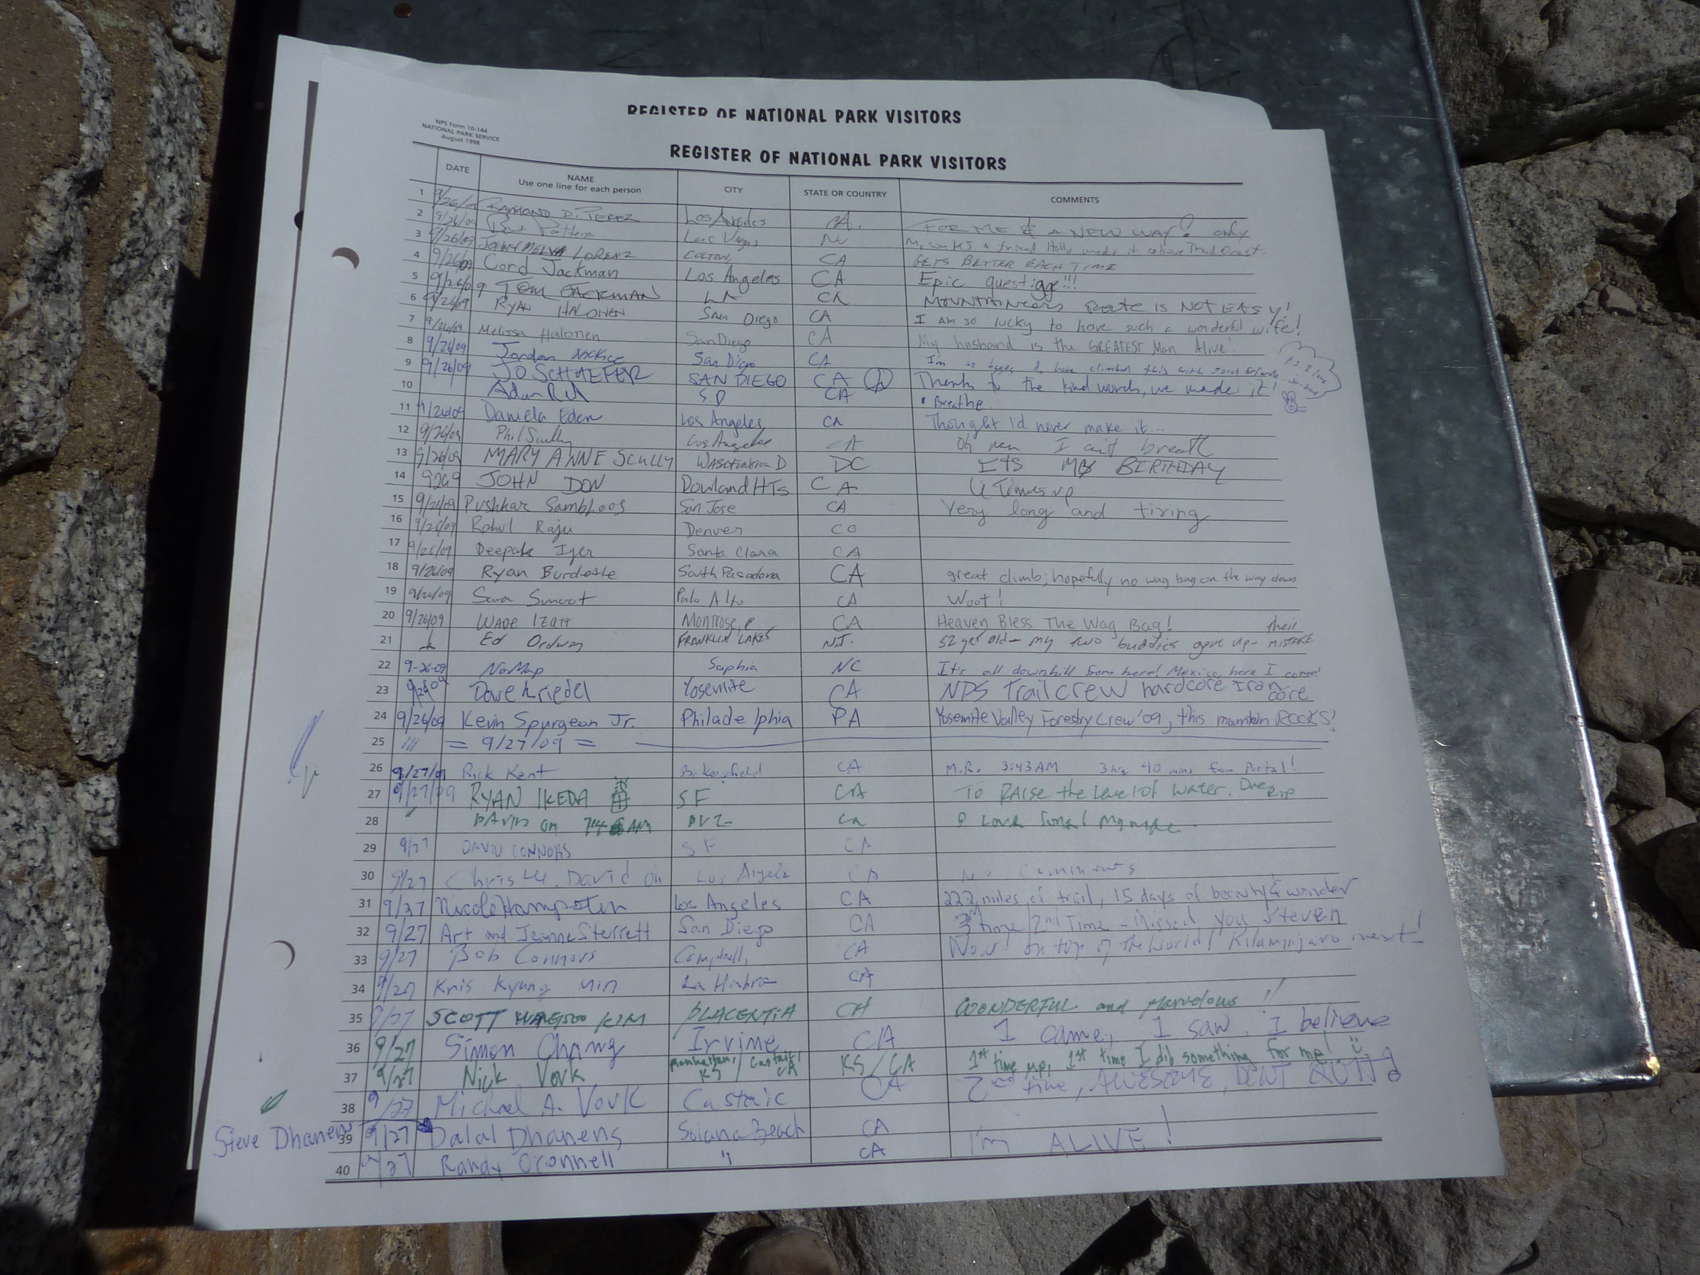 REGISTER OF NATIONAL PARK VISITORS
NPS Form 10-144
NATIONAL PARK SERVICE
August 1998
REGISTER OF NATIONAL PARK VISITORS
DATE NAME CITY STATE OR COUNTRY COMMENTS
Use one line for each person
1 RAYMOND D. PEREZ Los Angeles CA. FOR ME & A NEW WAY! only
2 9/26/09 Las Vegas
3 9/26/09 LORENZ CA GETS BETTER EACH TIME
4 9/26/09 Cord Jackman Los Angeles CA Epic quest
5 9/26/09 TOM JACKMAN LA CA MOUNTAINEERS Route is NOT EASY!
6 9/26/09 RYAN HALONEN San Diego CA I am so lucky to have such a wonderful wife!
7 9/26/09 Melissa Halonen San Diego CA My husband is the GREATEST Man Alive!
8 9/26/09 Jordan San Diego CA
9 9/26/09 JO SCHAEFER SAN DIEGO CA Thanks to the kind words, we made it!
10 SD CA • Breathe
11 9/26/09 Daniela Eden Los Angeles CA Thought I'd never make it...
12 9/26/09 Phil Scully Los Angeles CA Oh man I cant breath
13 9/26/09 MARY ANNE SCULLY DC ITS MY BIRTHDAY
14 JOHN DON Rowland HTS CA
15 9/26/09 Pushkar San Jose CA Very long and tiring
16 9/26/09 Rahul Raju Denver CO
17 9/26/09 Deepak Iyer Santa Clara CA
18 9/26/09 Ryan South Pasadena CA great climb; hopefully no wag bag on the way down
19 9/26/09 Palo Alto CA Woot!
20 9/26/09 WADE Montrose CA Heaven Bless The Wag Bag!
21 Ed FRANKLIN LAKES N.J. 52 yr old - my two buddies gave up - their mistake
22 9-26-09 NoMap Saphia NC It's all downhill from here! Mexico here I come!
23 Dave Kriedel Yosemite CA NPS Trail Crew hardcore Iron core
24 9/26/09 Kevin Spurgeon Jr. Philadelphia PA Yosemite Valley Forestry Crew '09, this mountain ROCKS!
25 = 9/27/09 =
26 9/27/09 Rick Kent Bakersfield CA M.R. 3:43AM 3 hrs 40 mins from Portal!
27 9/27/09 RYAN IKEDA SF CA To RAISE the Level of Water.
28 CA
29 9/27 DAVID CONNORS SF CA
30 9/27 Los Angeles CA
31 9/27 Nicole Los Angeles CA 222 miles of trail, 15 days of beauty & wonder
32 9/27 Art and Jeanne Sterrett San Diego CA 3rd time 2nd Time - Missed you Steven
33 9/27 Bob Connors Campbell, CA Now on top of the world! Kilaminjaro next!
34 9/27 Kris Kyung Min La Habra CA
35 9/27 SCOTT KIM PLACENTIA CA WONDERFUL and Marvelous!!
36 9/27 Simon Chang Irvine CA I came, I saw, I believe
37 9/27 Nick Vork Manhattan, KS / Castaic, CA KS / CA 1st time up, 1st time I did something for me!
38 9/27 Michael A. Vork Castaic CA 2nd time, AWESOME, DON'T QUIT
Steve Dhanens 39 9/27 Dalal Dhanens Solana Beach CA I'm ALIVE!
40 9/27 Randy O'Connell " CA